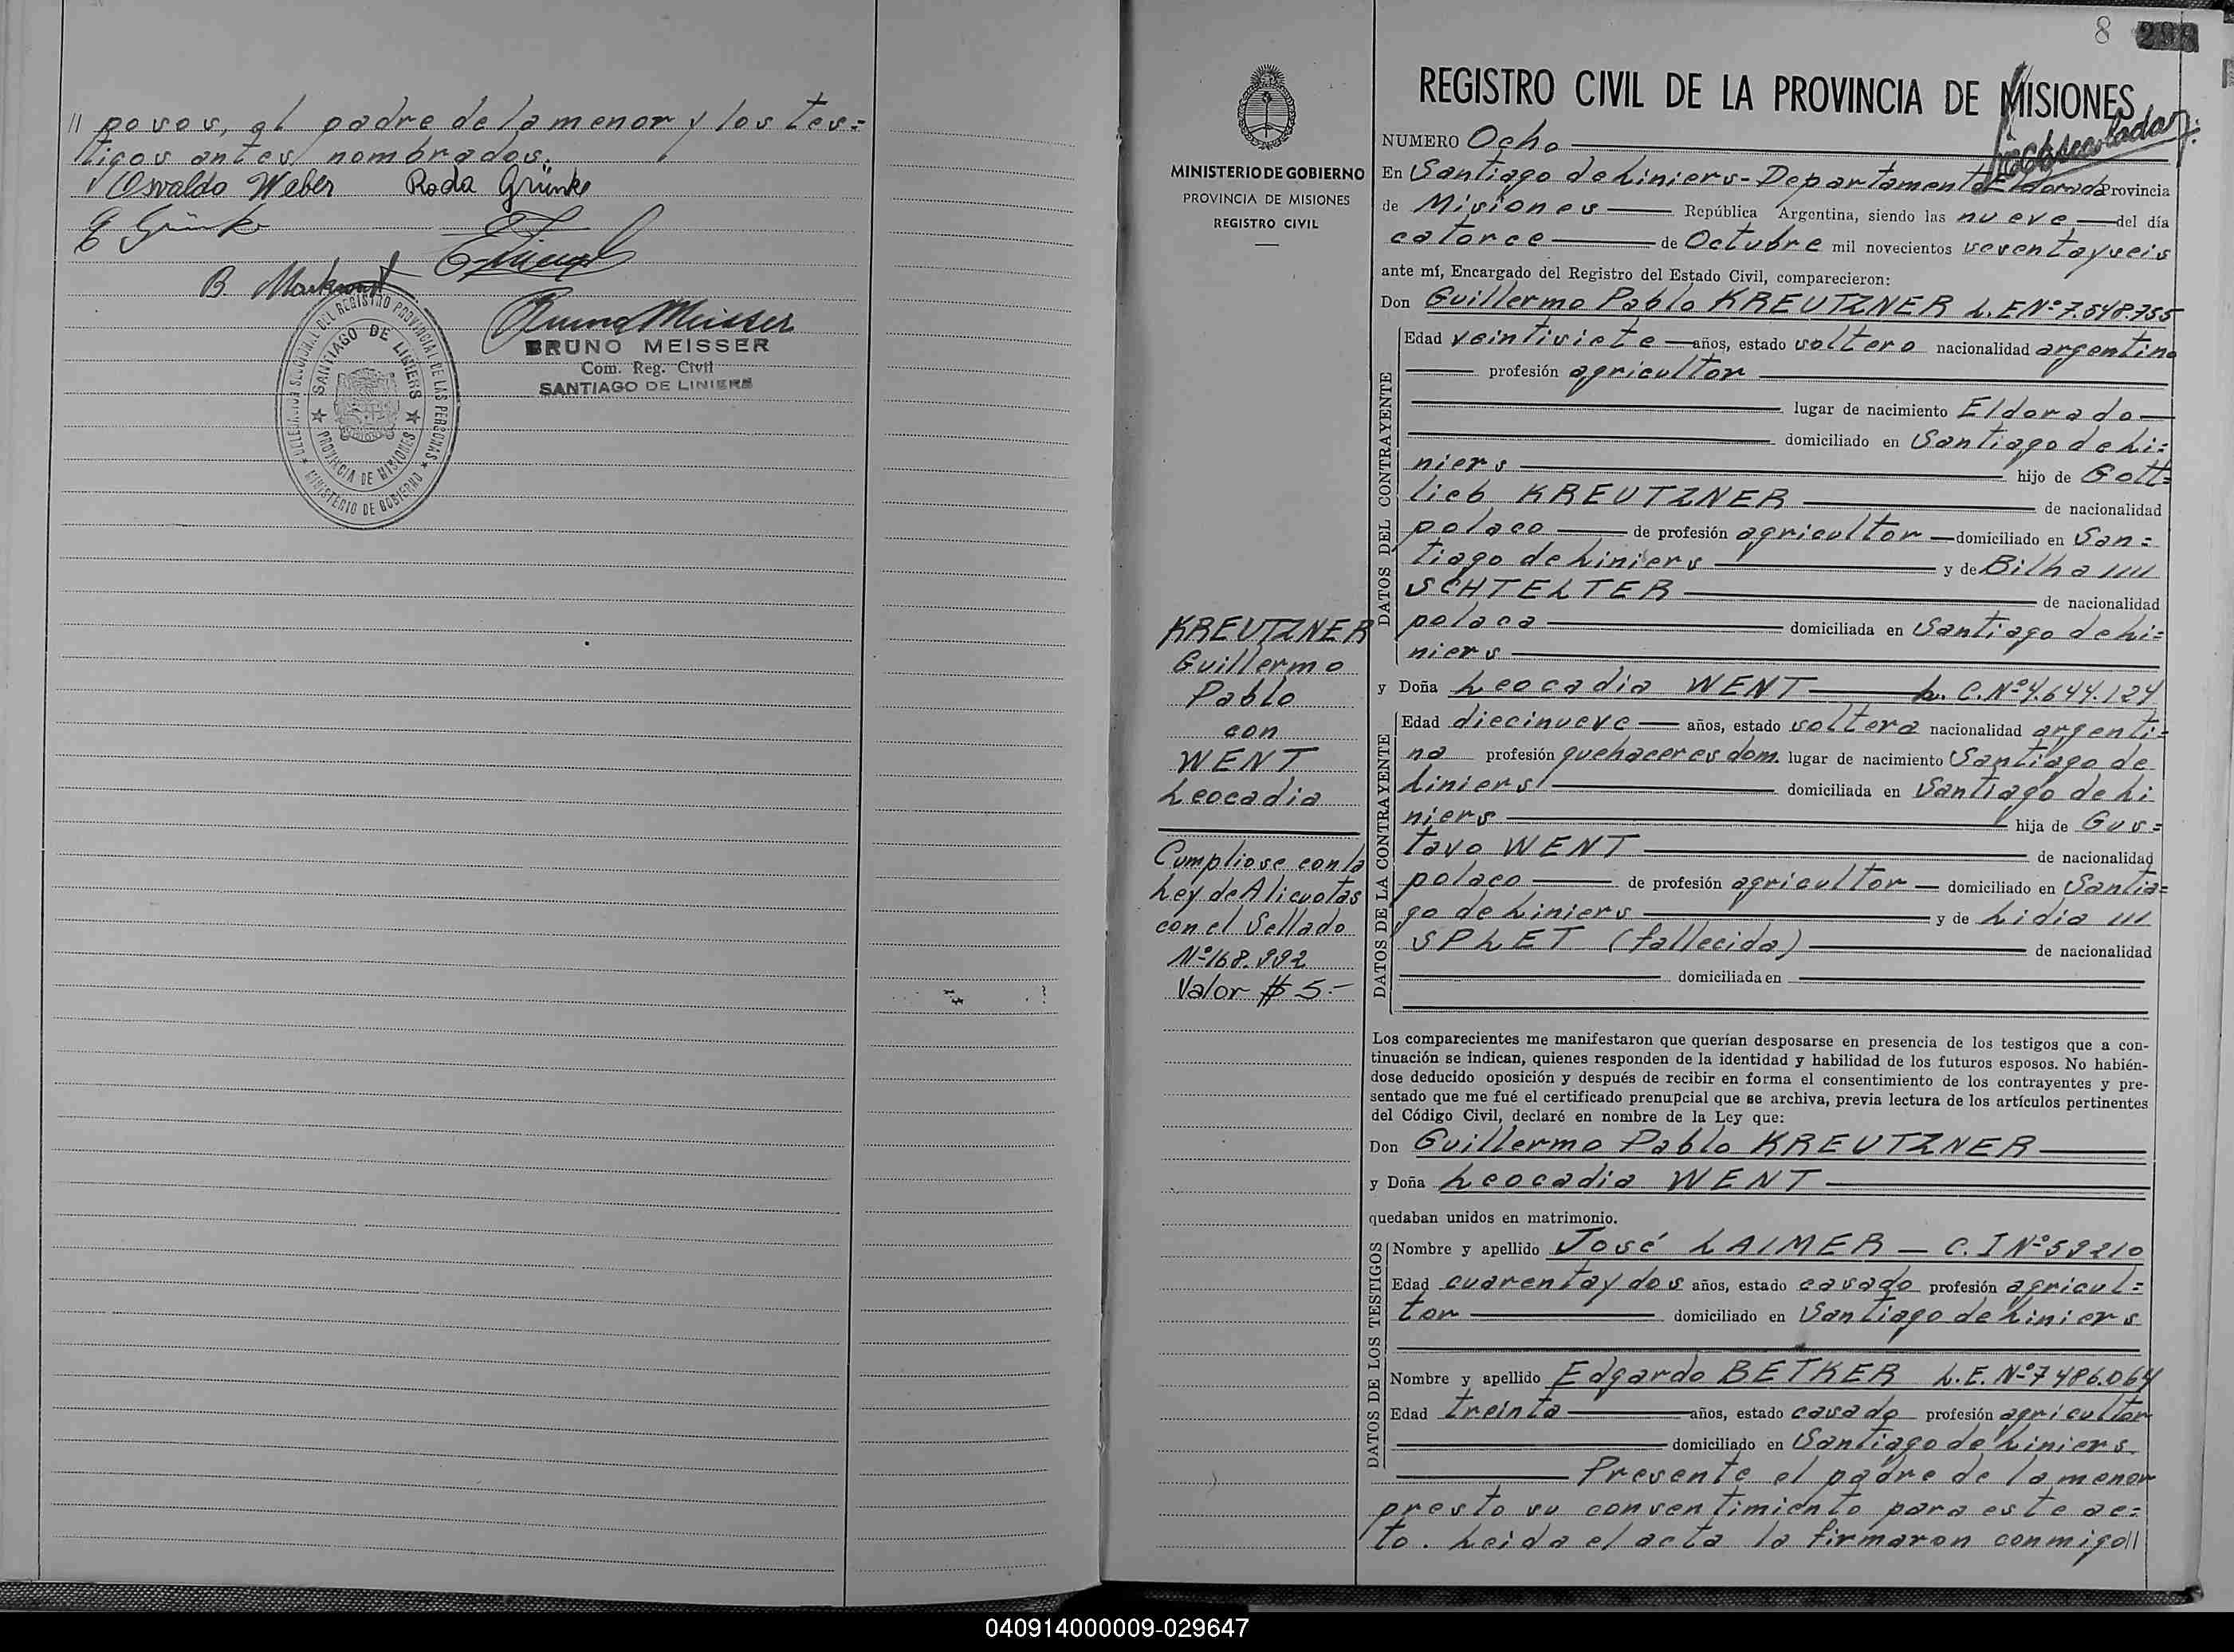 // posos, al padre de la menor y los tes=
tigos antes nombrados.
Osvaldo Weber Roda Grünke
E Grünke
B. Markwart
Bruno Meisser
BRUNO MEISSER
Com. Reg. Civil
SANTIAGO DE LINIERS
DELEGACION SECCIONAL DEL REGISTRO PROVINCIAL DE LAS PERSONAS
SANTIAGO DE LINIERS
PROVINCIA DE MISIONES
MINISTERIO DE GOBIERNO
8
MINISTERIO DE GOBIERNO
PROVINCIA DE MISIONES
REGISTRO CIVIL
KREUTZNER
Guillermo
Pablo
con
WENT
Leocadia
Cumpliose con la
Ley de Alicuotas
con el Sellado
Nº 168.992
Valor $ 5.-
REGISTRO CIVIL DE LA PROVINCIA DE MISIONES
NUMERO Ocho
En Santiago de Liniers - Departamento Eldorado Provincia
de Misiones República Argentina, siendo las nueve del día
catorce de Octubre mil novecientos sesenta y seis
ante mí, Encargado del Registro del Estado Civil, comparecieron:
Don Guillermo Pablo KREUTZNER L. E Nº 7.548.755
DATOS DEL CONTRAYENTE
Edad veintisiete años, estado soltero nacionalidad argentino
profesión agricultor
lugar de nacimiento Eldorado
domiciliado en Santiago de Li=
niers hijo de Gott=
lieb KREUTZNER de nacionalidad
polaco de profesión agricultor domiciliado en San=
tiago de Liniers y de Bilha
SCHTELTER de nacionalidad
polaca domiciliada en Santiago de Li=
niers
y Doña Leocadia WENT L. C. Nº 4.644.124
DATOS DE LA CONTRAYENTE
Edad diecinueve años, estado soltera nacionalidad argenti=
na profesión quehaceres dom. lugar de nacimiento Santiago de
Liniers domiciliada en Santiago de Li
niers hija de Gus=
tavo WENT de nacionalidad
polaco de profesión agricultor domiciliado en Santia=
go de Liniers y de Lidia
SPLET (fallecida) de nacionalidad
domiciliada en
Los comparecientes me manifestaron que querían desposarse en presencia de los testigos que a con-
tinuación se indican, quienes responden de la identidad y habilidad de los futuros esposos. No habién-
dose deducido oposición y después de recibir en forma el consentimiento de los contrayentes y pre-
sentado que me fué el certificado prenupcial que se archiva, previa lectura de los artículos pertinentes
del Código Civil, declaré en nombre de la Ley que:
Don Guillermo Pablo KREUTZNER
y Doña Leocadia WENT
quedaban unidos en matrimonio.
DATOS DE LOS TESTIGOS
Nombre y apellido José LAIMER - C. I Nº 59210
Edad cuarenta y dos años, estado casado profesión agricul=
tor domiciliado en Santiago de Liniers
Nombre y apellido Edgardo BETKER L. E. Nº 7486.064
Edad treinta años, estado casado profesión agricultor
domiciliado en Santiago de Liniers
Presente el padre de la menor
presto su consentimiento para este ac=
to. Leida el acta la firmaron conmigo //
040914000009-029647